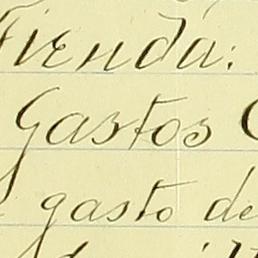 Tienda:
Gastos
gasto de